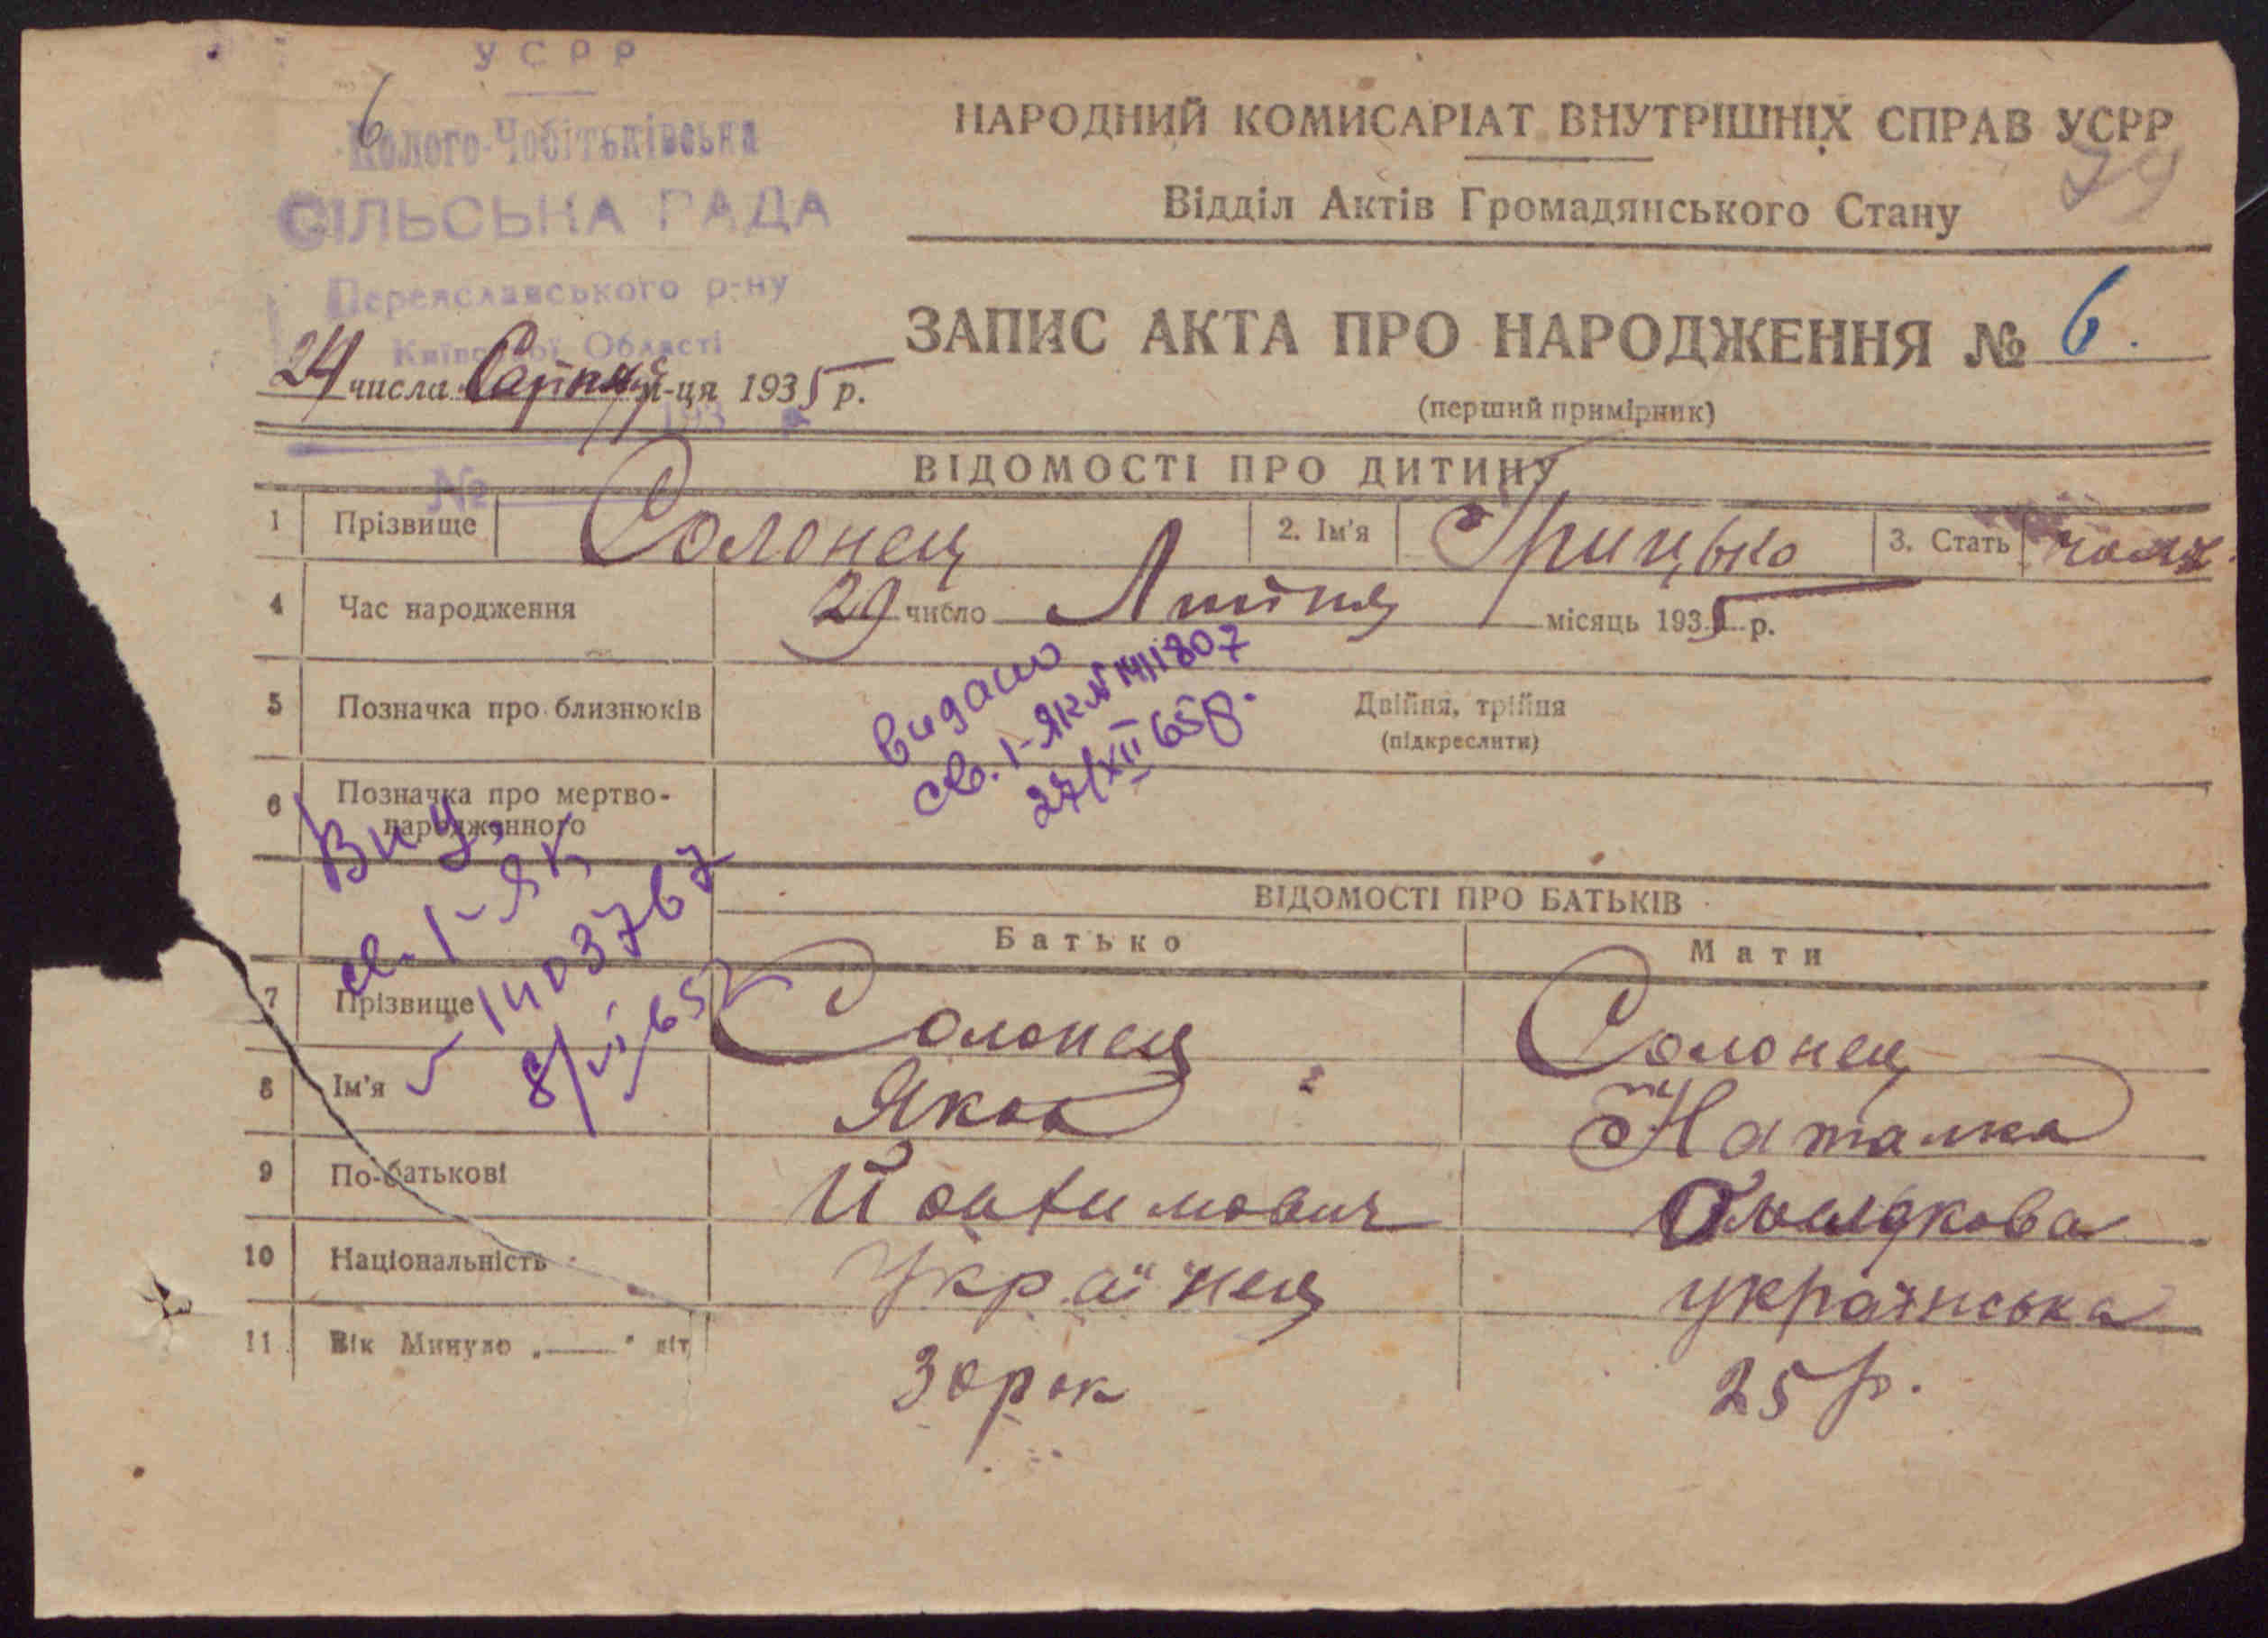 УСРР
6
СІЛЬСЬКА РАДА
Переяславського р-ну
Київської Області
193
№
НАРОДНИЙ КОМИСАРІАТ ВНУТРІШНІХ СПРАВ УСРР
Відділ Актів Громадянського Стану
24 числа Серпня м-ця 1935 р.
ЗАПИС АКТА ПРО НАРОДЖЕННЯ № 6.
(перший примірник)
ВІДОМОСТІ ПРО ДИТИНУ
1 Прізвище Солонец 2. Ім'я Грицько 3. Стать чол.
4 Час народження 29 число Липня місяць 1935 р.
5 Позначка про близнюків Двійня, трійня
(підкреслити)
видано
св. І-ЯК № 1411807
27/XII 65р.
6 Позначка про мертво-
народженного
Вид.
св. І-ЯК
1403767
8/VI 65
ВІДОМОСТІ ПРО БАТЬКІВ
Батько Мати
7 Прізвище Солонец Солонец
8 Ім'я Яков Наталка
9 По-батькові
10 Національність Українец українська
11 Вік Минуло „——" літ 30 рок 25 р.